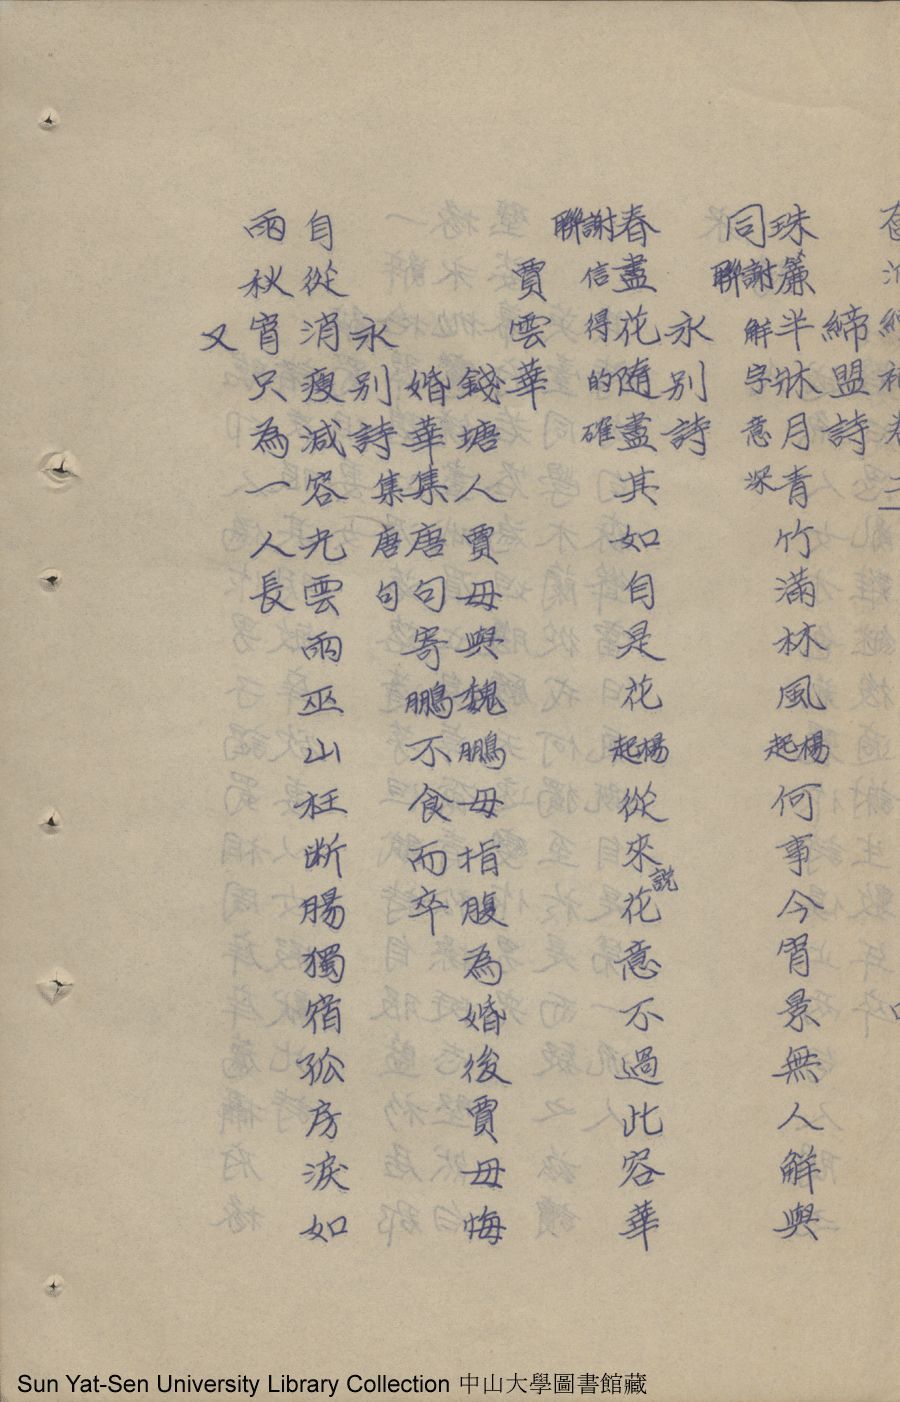 締盟詩
珠簾半牀月青竹滿林風楊起何事今宵景無人解與
同謝聯解字意深
永別詩
春盡花隨盡其如自是花楊起從來說花意不過此容華
謝聯信得的確
賈雲華
錢塘人賈母與魏鵬母指腹為婚後賈母悔
婚華集唐句寄鵬不食而卒
永別詩集唐句
自從消瘦減容光雲雨巫山枉断腸獨宿孤房淚如
雨秋宵只為一人長
又
Sun Yat-Sen University Library Collection 中山大學圖書館藏